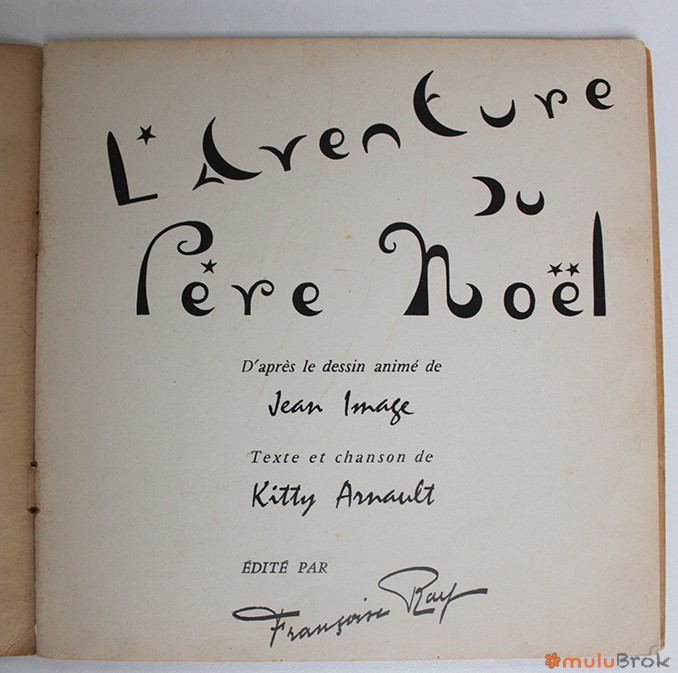 L'Aventure
Du
Père Noël
D'après le dessin animé de
Jean Image
Texte et chanson de
Kitty Arnault
ÉDITÉ PAR
Françoise Ray
muluBrok